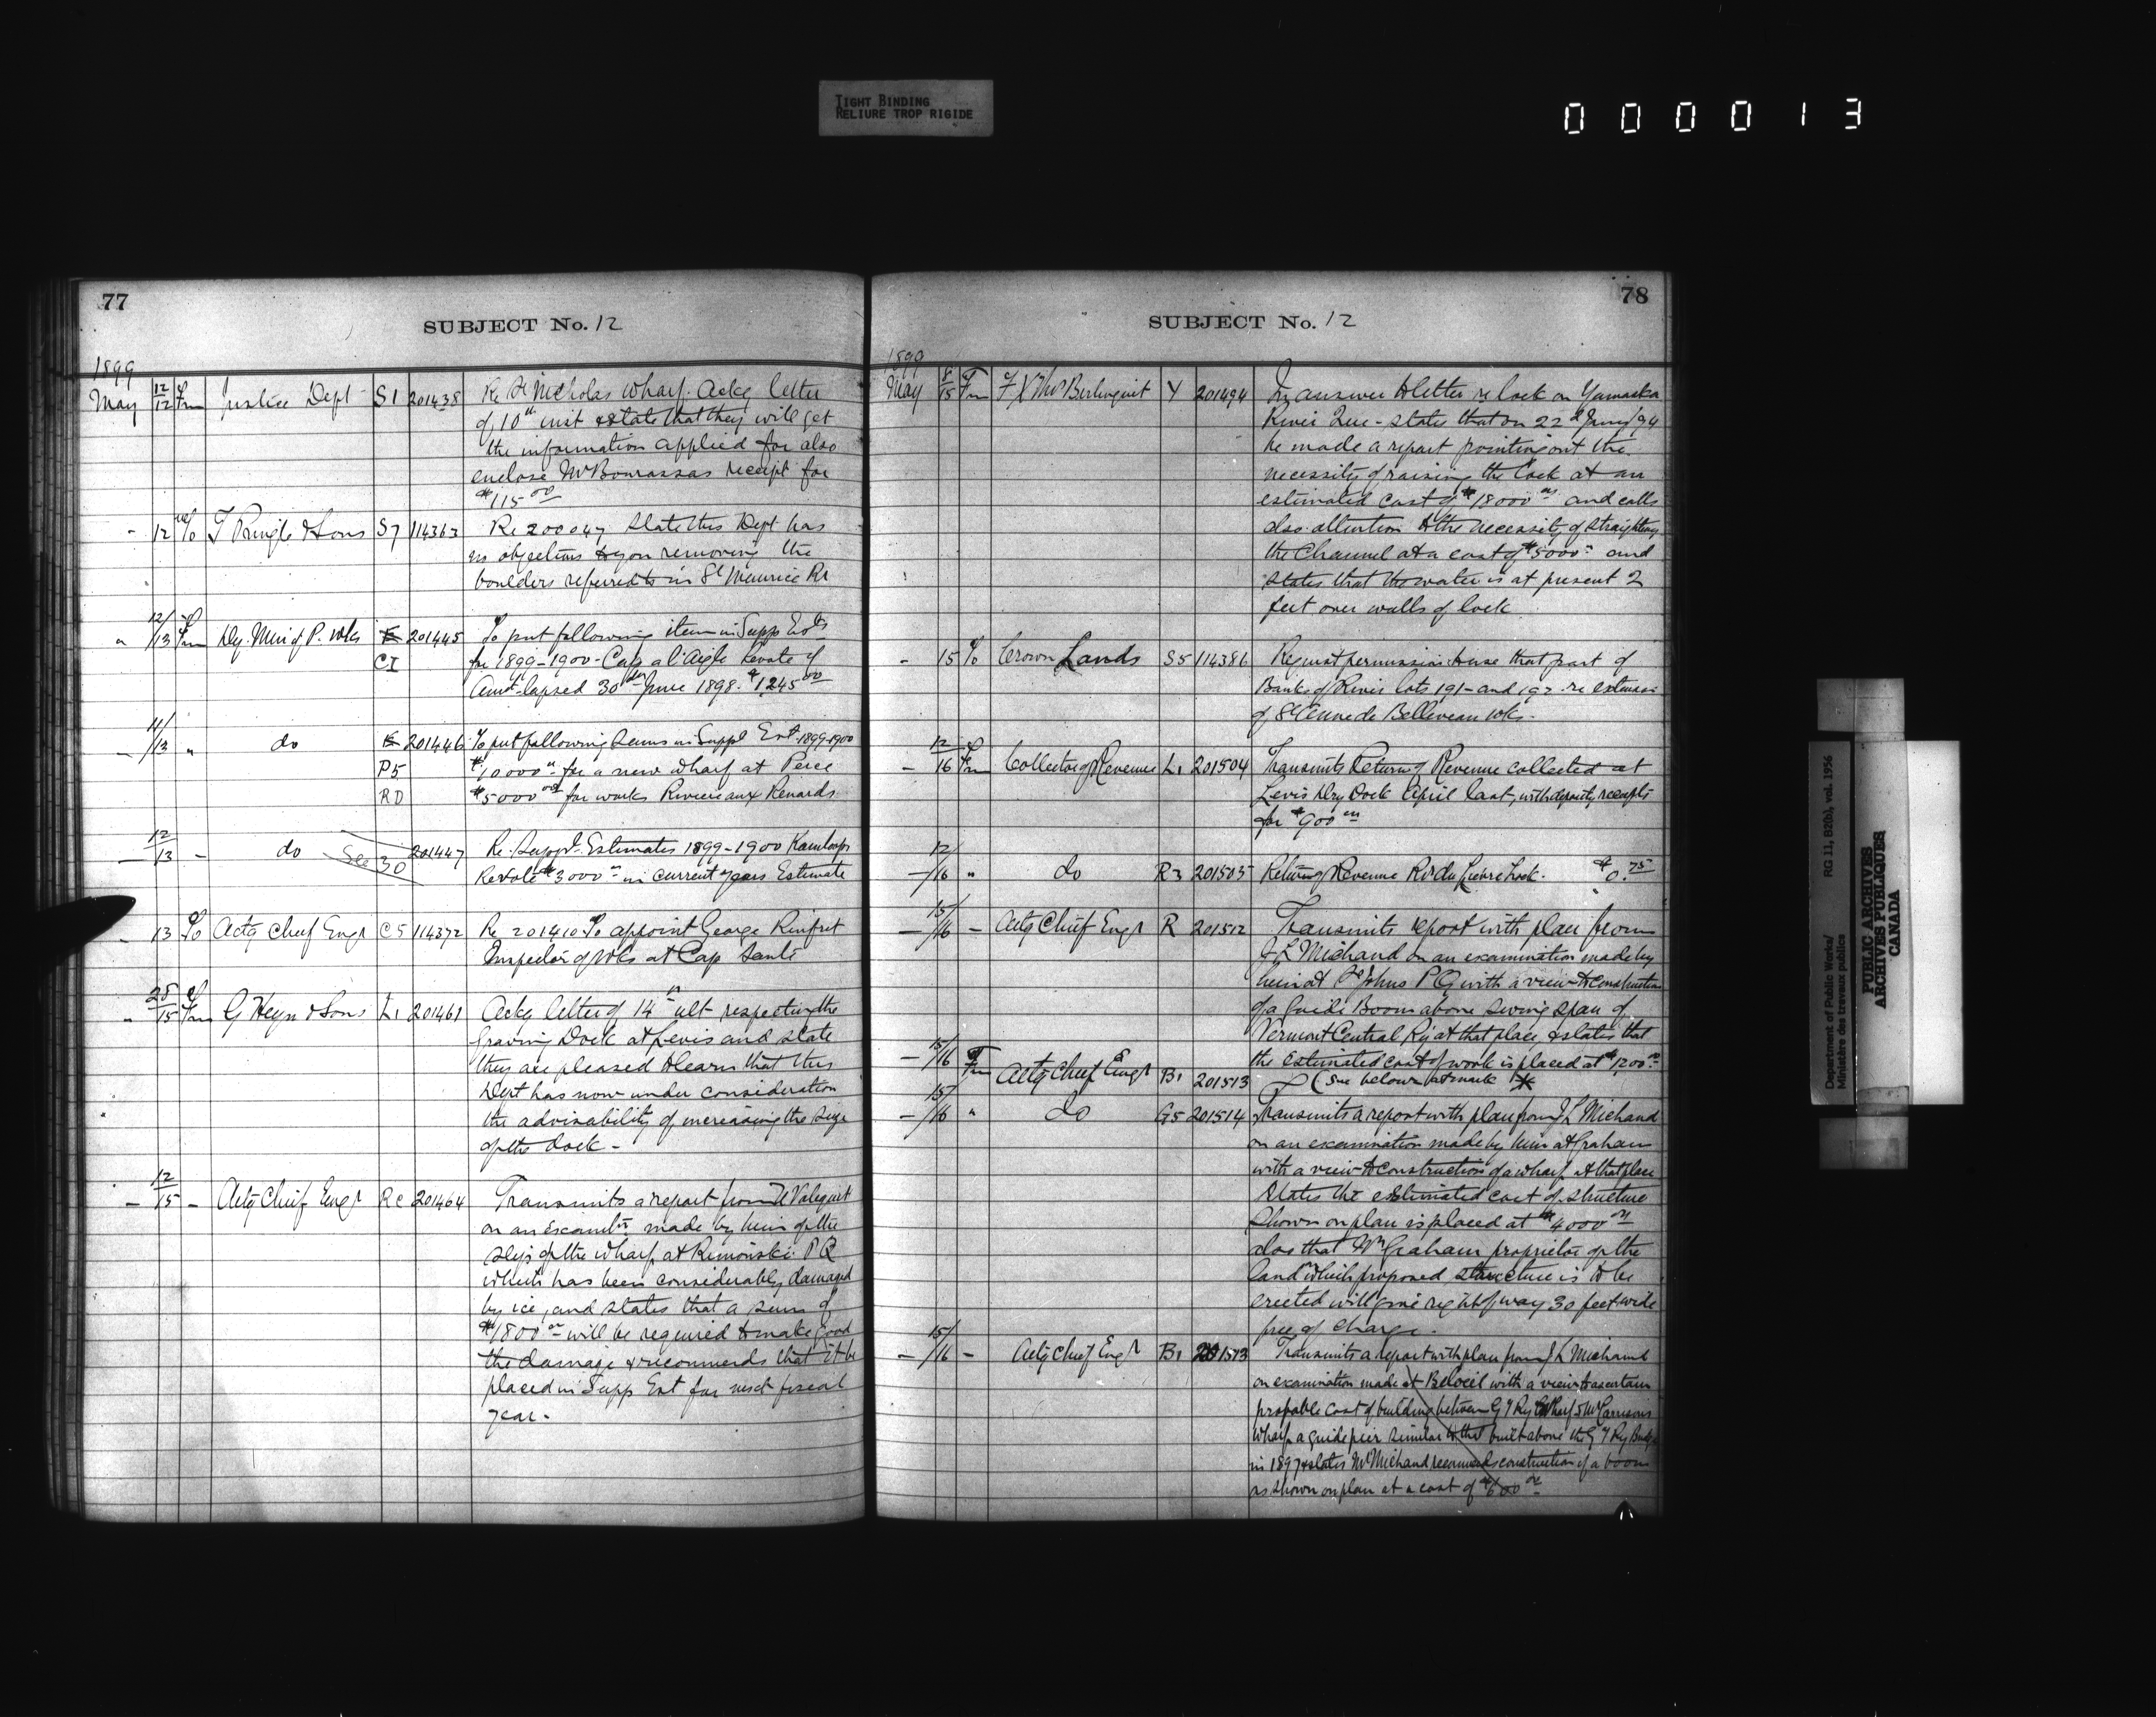 TIGHT BINDING
RELIURE TROP RIGIDE
000013
77
SUBJECT No. 12
1899
May 12/12 Fm Justice Dept S1 201438 Re St Nicholas wharf. Ackg letter
of 10th inst & state that they will get
the information applied for also
enclose Mr Bourassas receipt for
$115 00
- 12 To T Pringle & Sons S7 114363 Re 200047 State this Dept has
no objections to you removing the
boulders referred to in St Maurice Rr
" 12/13 Fm Dy. Min of P. Wks E 201445 To put following item in Supp Ests
CI for 1899-1900 - Cap a l'Aigle Revote of
Amt lapsed 30th June 1898. $1,245 00
- 11/13 " do E 201446 To put following items in Suppl Est 1899-1900
P5 $10000 00 for a new wharf at Perce
RD $5000 00 for works Riviere aux Renards
- 12/13 - do See 30 201447 Re. Suppl. Estimates 1899-1900 Kamloops
Revote $3000 00 in current years Estimate
- 13 To Actg Chief Engr C5 114372 Re 201410 To appoint George Rinfret
Inspector of Wks at Cap Santé
" 28/15 Fm G Heyn & Sons L1 201461 Ackg letter of 14th ult respecting the
Graving Dock at Levis and state
they are pleased to learn that this
Dept has now under consideration
the advisability of increasing the size
of the dock -
- 12/15 - Actg Chief Engr Rc 201464 Transmits a report from U Valiquet
on an examtn made by him of the
slip of the wharf at Rimouski P Q
which has been considerably damaged
by ice, and states that a sum of
$1800 00 will be required to make good
the damage & recommends that it be
placed in Supp Est for next fiscal
year -
78
SUBJECT No. 12
1899
May 8/15 Fm F X Thos Berlinguet Y 201494 In answer to letter re lock on Yamaska
River Que - states that on 22d Jany/94
he made a report pointing out the
necessity of raising the lock at an
estimated cost of $18000 00 and calls
also attention to the necessity of straightening
the Channel at a cost of $5000 00 and
states that the water is at present 2
feet over walls of lock
- 15 To Crown Lands S5 114386 Request permission to use that part of
Banks of River lots 191 - and 192 re extension
of St Anne de Bellevue wks -
- 12/16 Fm Collector of Revenue L1 201504 Transmits Return of Revenue collected at
Levis Dry Dock April last, with deposit receipts
for $900 00
- 12/16 " do R3 201505 Return of Revenue Rr du Lievre Lock. $0.75
- 15/16 - Actg Chief Engr R 201512 Transmits report with plan from
J L Michaud on an examination made by
him at St Johns P Q with a view to construction
of a Guide Boom above swing span of
Vermont Central Ry at that place & states that
the estimated cost of work is placed at $1,200 00
- 15/16 Fm Actg Chief Engr B1 201513 (See below at mark *
- 15/16 " do G5 201514 Transmits a report with plan from J L Michaud
on an examination made by him at Graham
with a view to construction of a wharf at that place
states the estimated cost of structure
shown on plan is placed at $4000 00
also that Mr Graham proprietor of the
land which proposed structure is to be
erected will give right of way 30 feet wide
free of charge.
- 15/16 - Actg Chief Engr B1 201513 Transmits a report with plan from J L Michaud
on examination made at Beloeil with a view to ascertain
probable cost of building between G T Ry Wharf & Mr Garrisons
wharf a guide pier similar to that built above the G T Ry Bridge
in 1897 & states Mr Michaud recommends construction of a boom
as shown on plan at a cost of $600 00
Department of Public Works/ RG 11, B2(b), vol. 1956
Ministère des travaux publics
PUBLIC ARCHIVES
ARCHIVES PUBLIQUES
CANADA